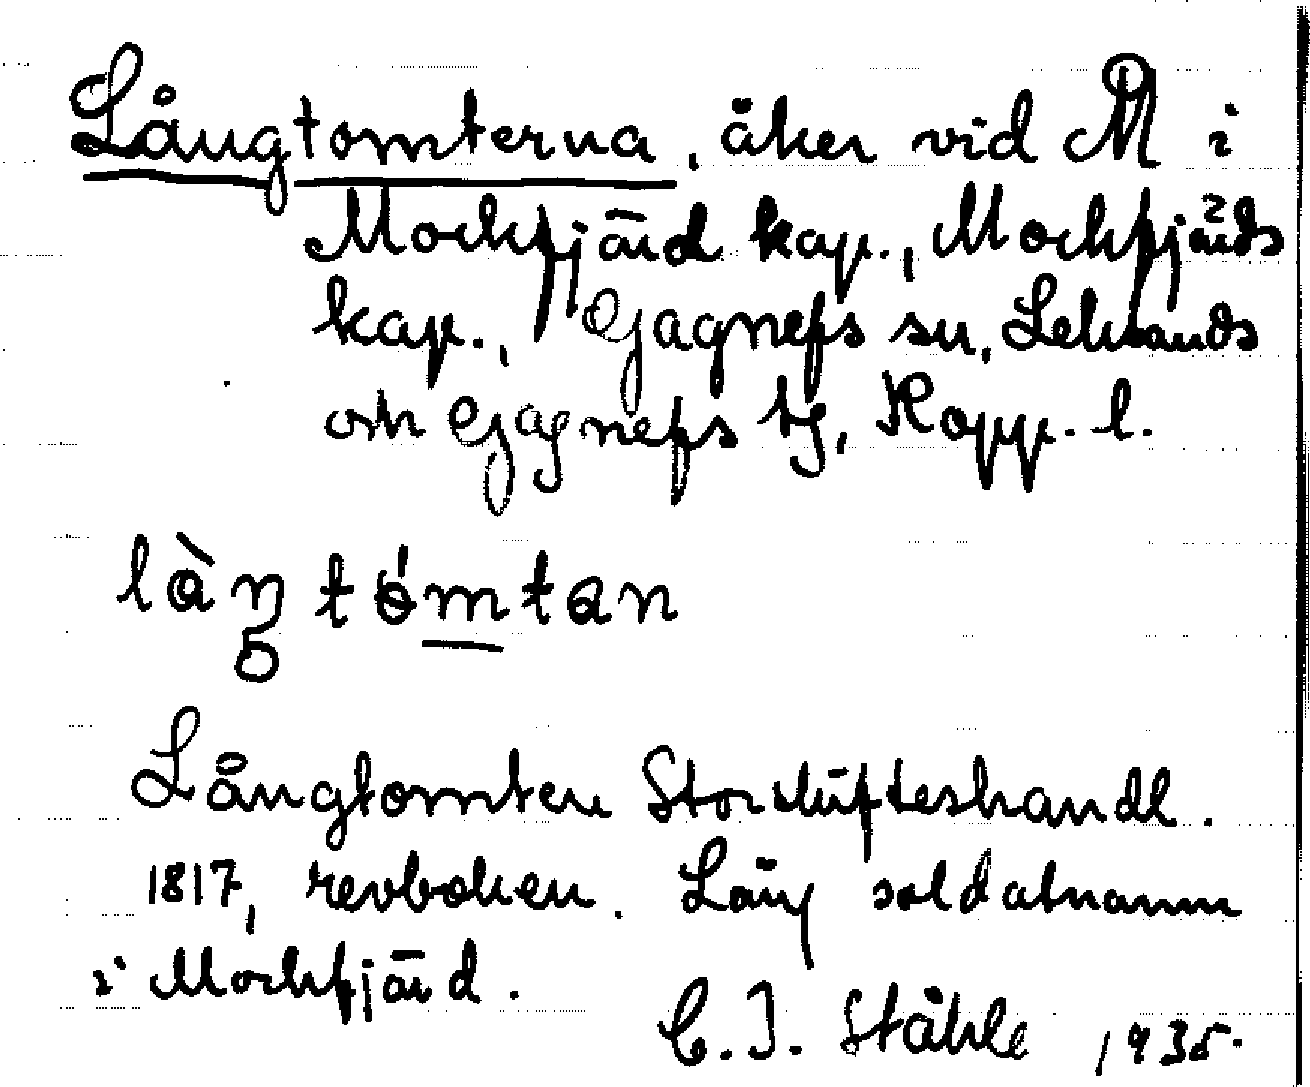 Långtomterna, åker vid M i
Mockfjärd kap., Mockfjärds
kap., Gagnefs sn, Leksands
och Gagnefs tg, Kopp. l.
tómtan
Långtomten Storskifteshandl.
1817, revboken. Lång soldatnamn
i Mockfjärd.
C.I. Ståhle 1935.